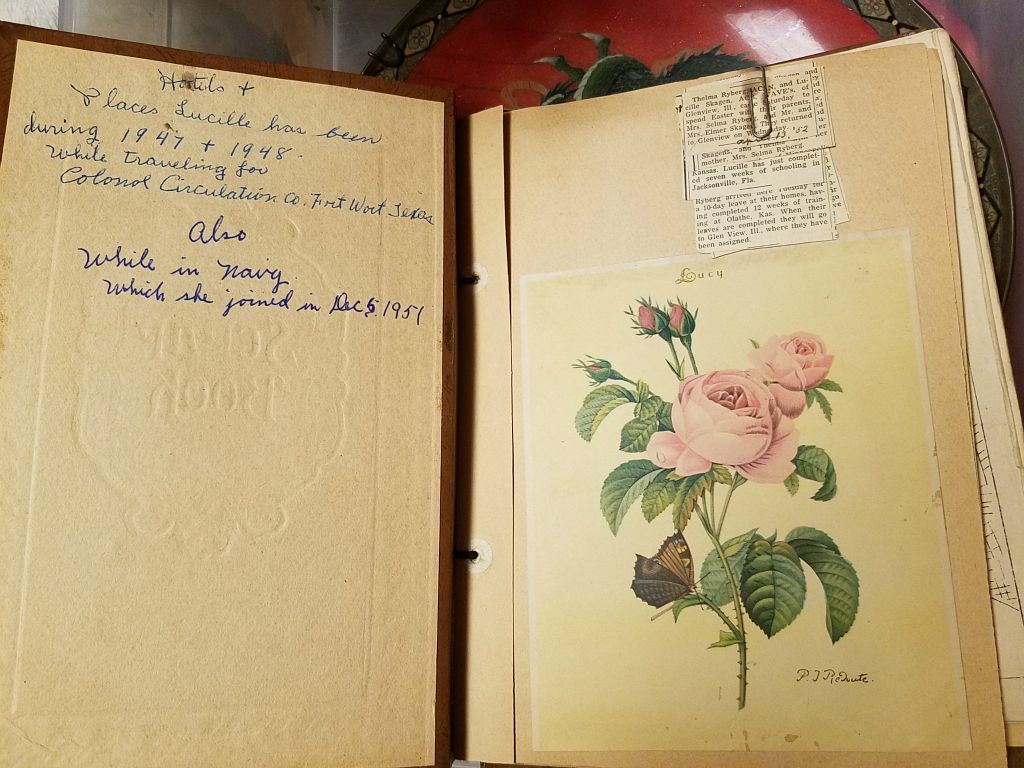 Hotels +
Places Lucille has been
during 1947 + 1948.
While traveling for
Colonol Circulation Co. Fort Wort Texas
Also
While in Navy
Which she joined in Dec 5, 1951
Scrap
Book
Thelma Ryberg, and Lu-
cille Skagen, of
Glenview, Ill., Saturday to
spend Easter with their parents,
Mrs. Selma Ryberg and Mr. and
Mrs. Elmer Skagen. They returned
to Glenview on Wednesday.
13, '52
Skagens, and Thelma
mother, Mrs. Selma Ryberg.
Kansas. Lucille has just complet-
ed seven weeks of schooling in
Jacksonville, Fla.
Ryberg arrived here Tuesday for
a 10-day leave at their homes, hav-
ing completed 12 weeks of train-
ing at Olathe, Kas. When their
leaves are completed they will go
to Glen View, Ill., where they have
been assigned.
Lucy
P. J Redoute.